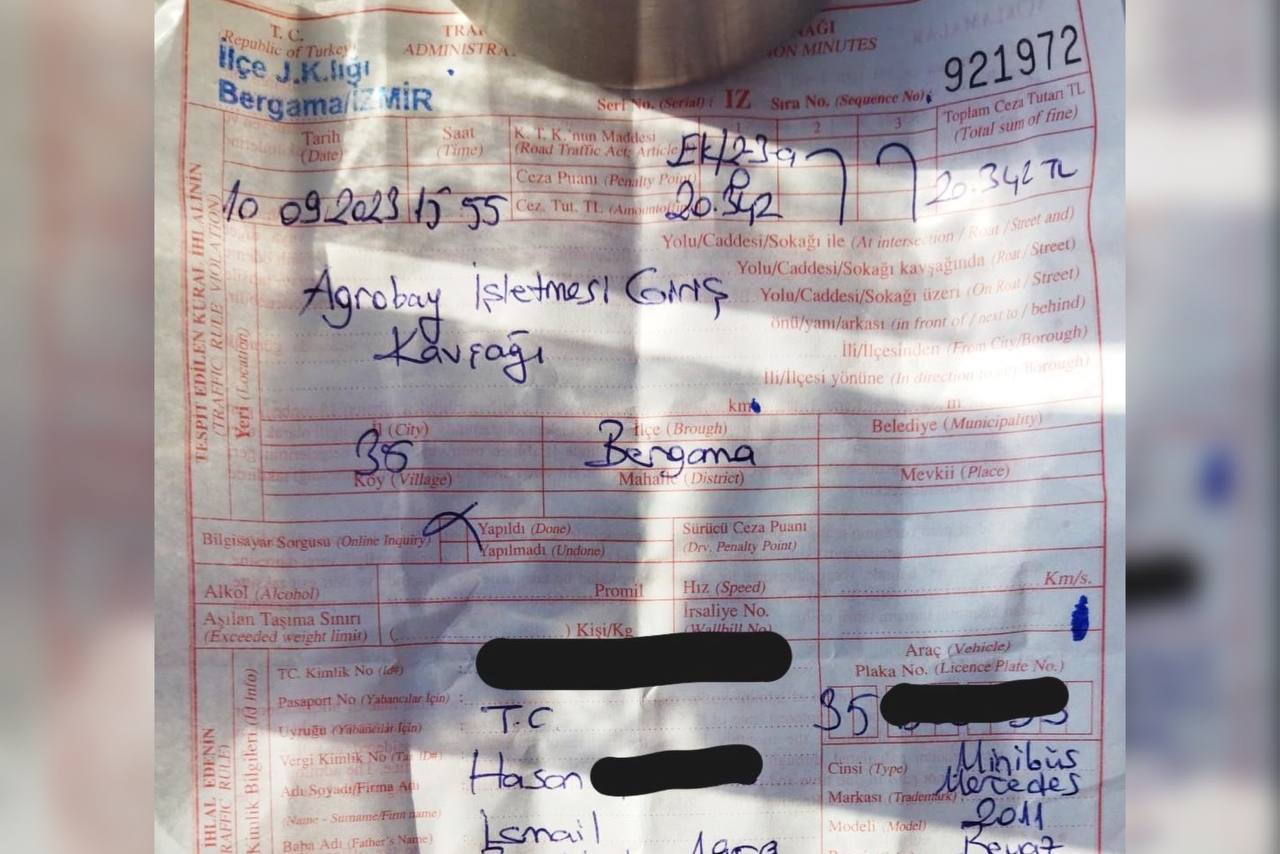 T. C.
(Republic of Turkey)
İlçe J.K.lığı
Bergama/İZMİR
ADMINISTRA
ON MINUTES
921972
Seri No. (Serial) : IZ Sıra No. (Sequence No) :
Toplam Ceza Tutarı TL
(Total sum of fine)
20.342 TL
TESPİT EDİLEN KURAL İHLALİNİN
(TRAFFIC RULE VIOLATION)
Tarih
(Date)
10 09.2023
Saat
(Time)
15 55
1 2 3
K. T. K.'nun Maddesi
(Road Traffic Act; Article
Ek/23-a
Ceza Puanı (Penalty Point)
0
Cez. Tut. TL
20.342
Yeri (Location)
Yolu/Caddesi/Sokağı ile (At intersection / Roat / Street and)
Yolu/Caddesi/Sokağı kavşağında (Roat / Street)
Agrobay İşletmesi Giriş
Yolu/Caddesi/Sokağı üzeri (On Roat / Street)
önü/yanı/arkası (in front of / next to / behind)
Kavşağı
İli/İlçesinden (From City/Borough)
İli/İlçesi yönüne
km m
İl (City)
35
İlçe (Brough)
Bergama
Belediye (Municipality)
Köy (Village)
Mahalle (District)
Mevkii (Place)
Bilgisayar Sorgusu (Online Inquiry)
Yapıldı (Done)
Yapılmadı (Undone)
Sürücü Ceza Puanı
(Drv. Penalty Point)
Alkol (Alcohol) Promil
Hız (Speed) Km/s.
Aşılan Taşıma Sınırı
(Exceeded weight limit) ( ) Kişi/Kg
İrsaliye No.
(Wallbill No)
İHLAL EDENİN
Kimlik Bilgileri (Id Info)
TC. Kimlik No (Id#) :
Pasaport No (Yabancılar İçin) :
Uyruğu (Yabancılar İçin) : T.C
Vergi Kimlik No
Adı Soyadı/Firma Adı
(Name - Surname/Firm name)
Hasan
Baba Adı (Father's Name)
İsmail
Araç (Vehicle)
Plaka No. (Licence Plate No.)
35
Cinsi (Type) Minibüs
Markası (Trademark) Mercedes
Modeli (Model) 2011
Beyaz